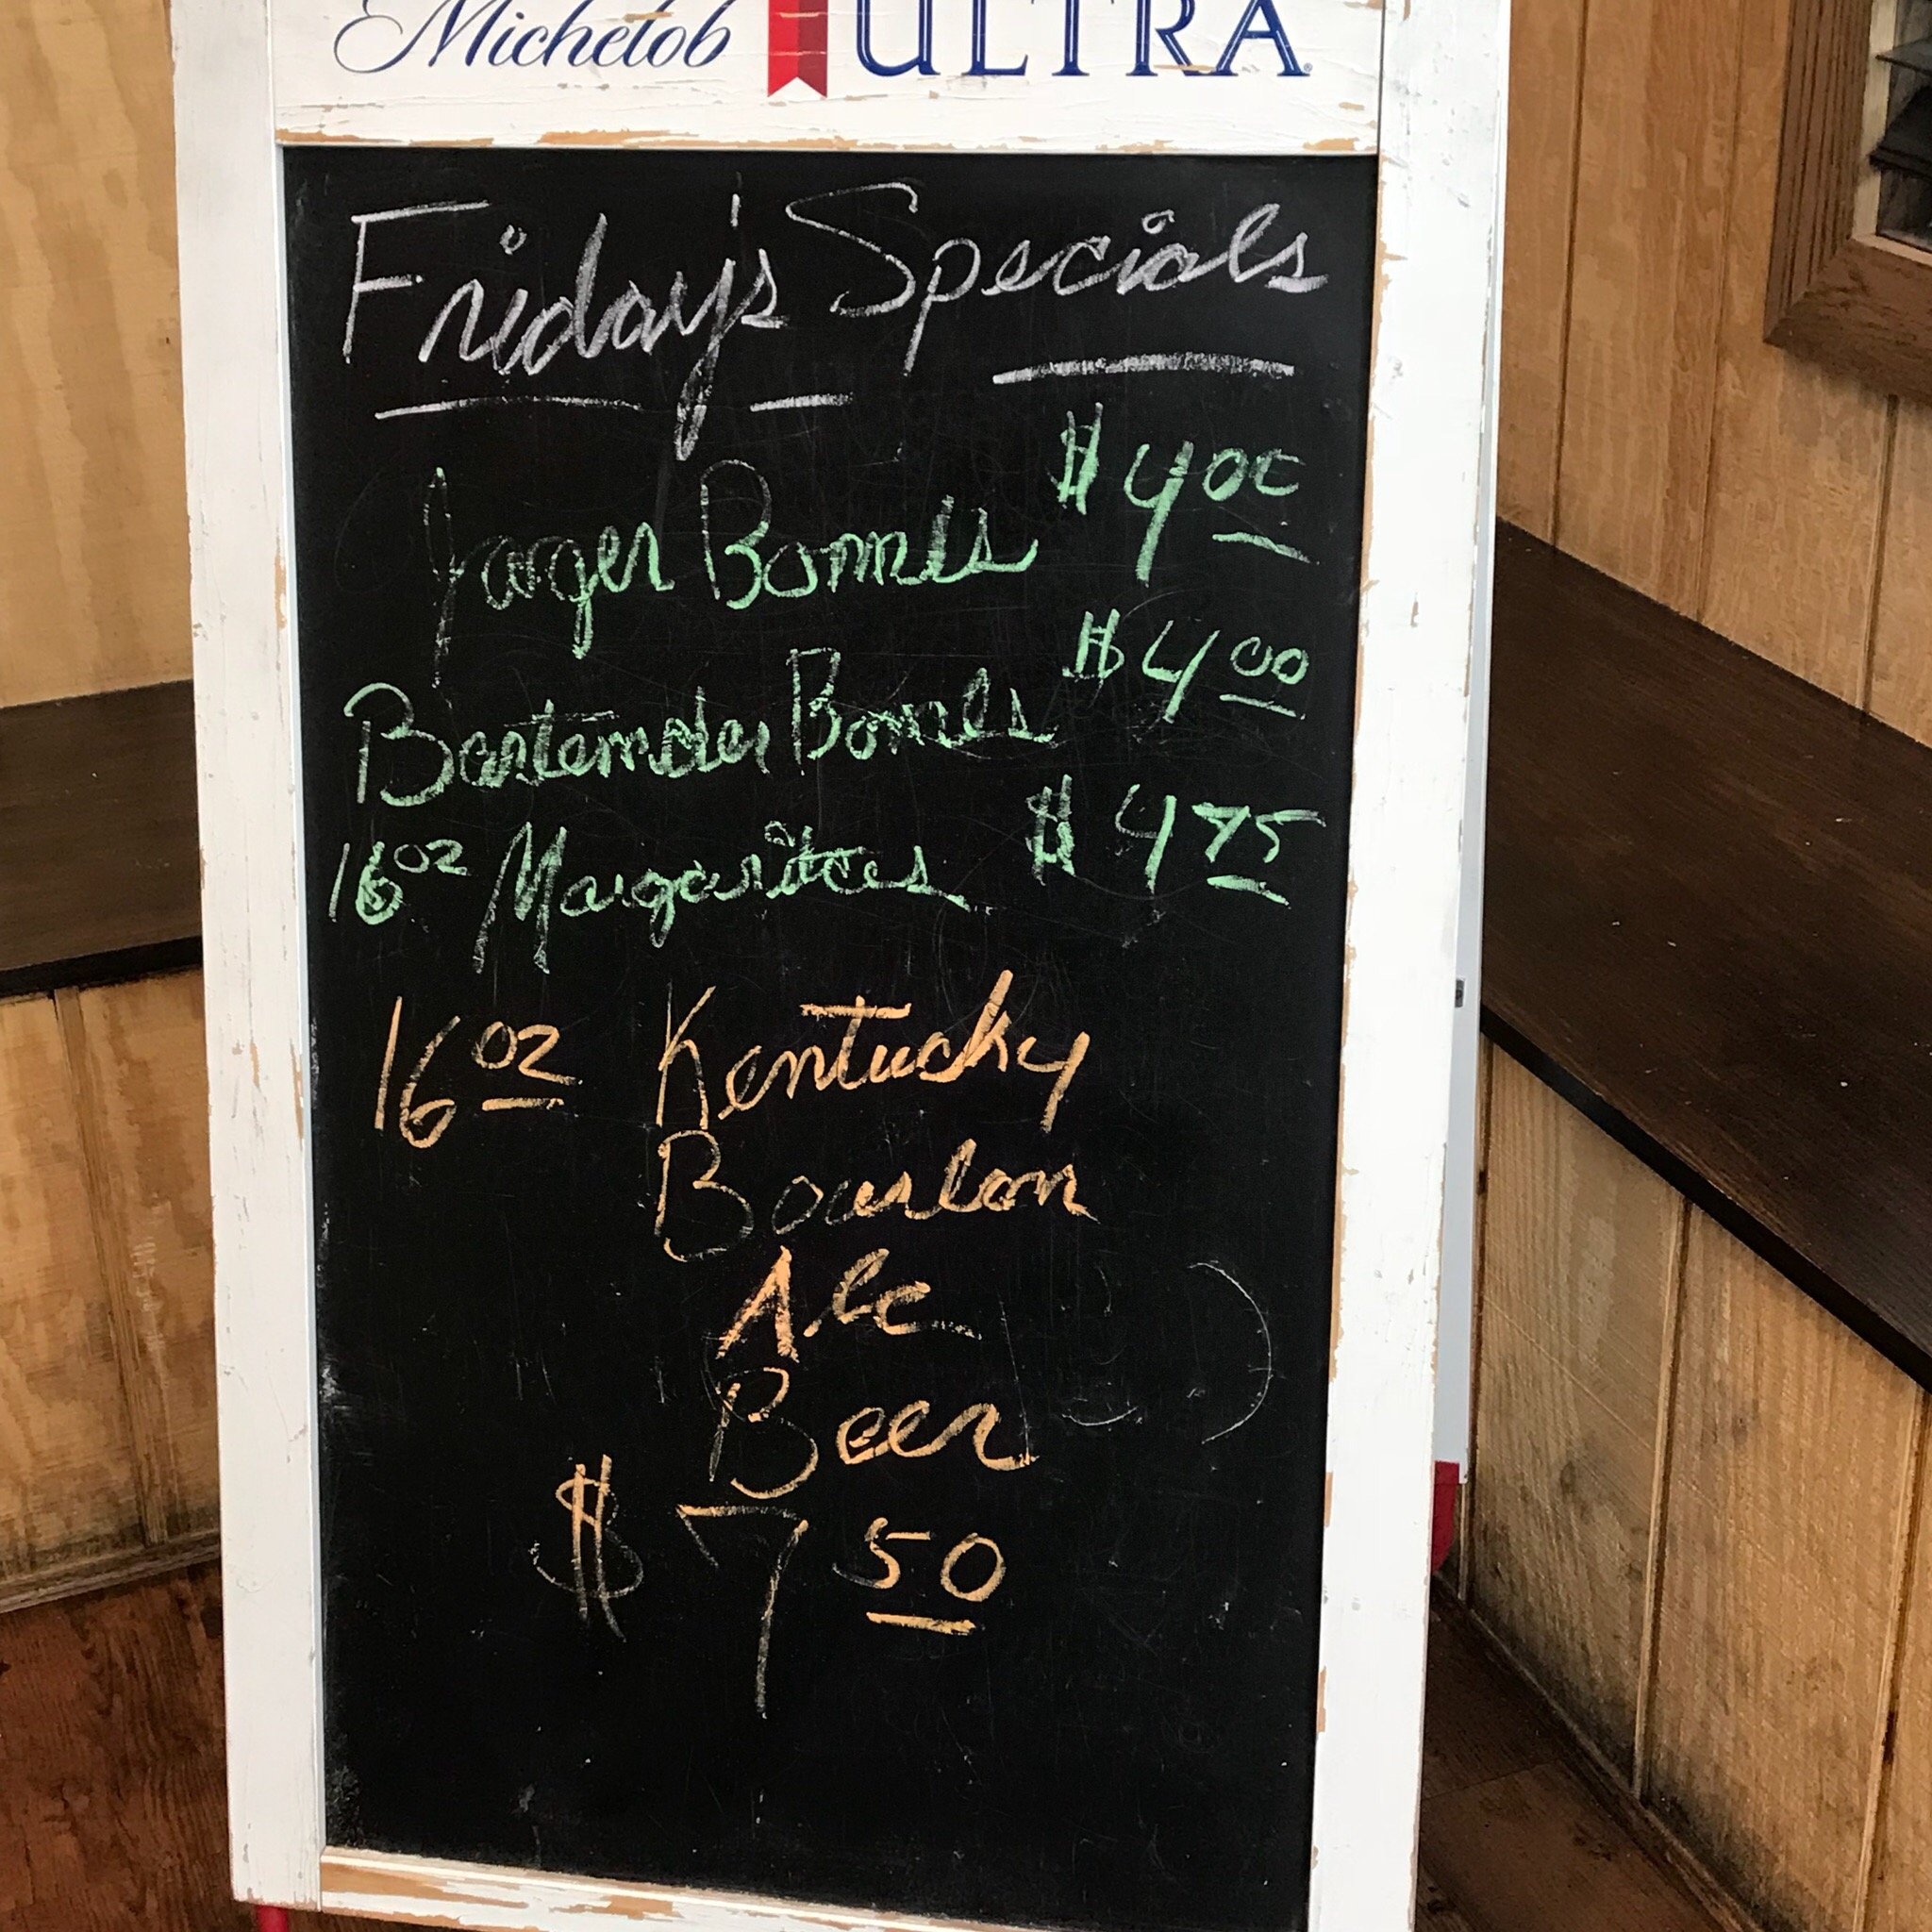 Michelob ULTRA
Friday's Specials
Jager Bombs $4 00
Bartender Bombs $4 00
16 oz Margaritas $4 75
16 oz Kentucky
Bourbon
Ale
Beer
$7 50